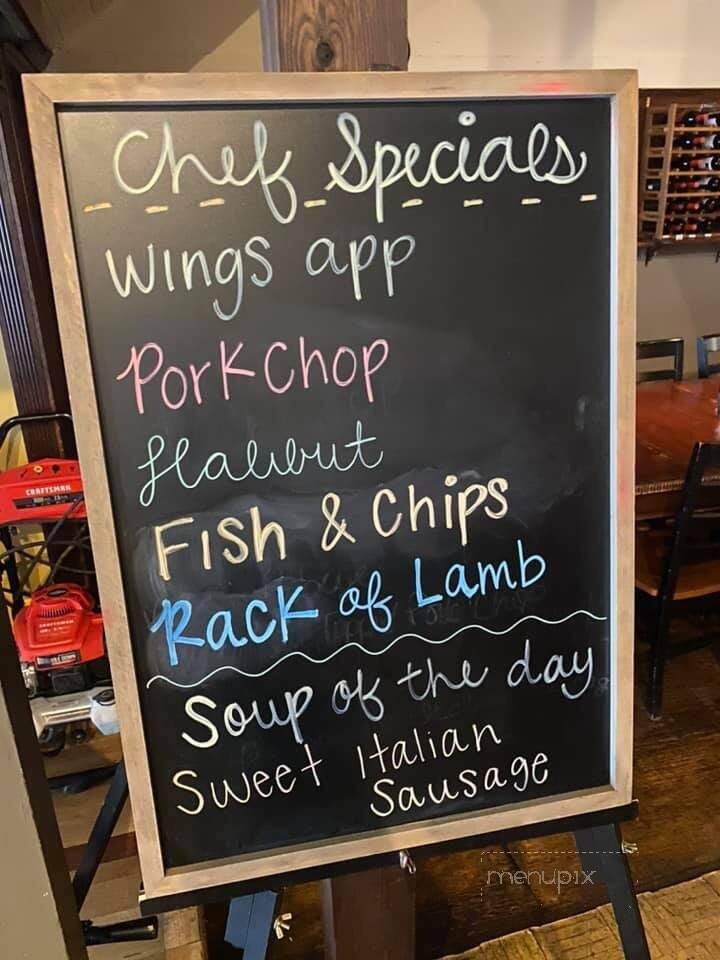 Chef Specials
Wings app
Pork Chop
Halibut
Fish & Chips
Rack of Lamb
Soup of the day
Sweet Italian
Sausage
CRAFTSMAN
CRAFTSMAN
menupix